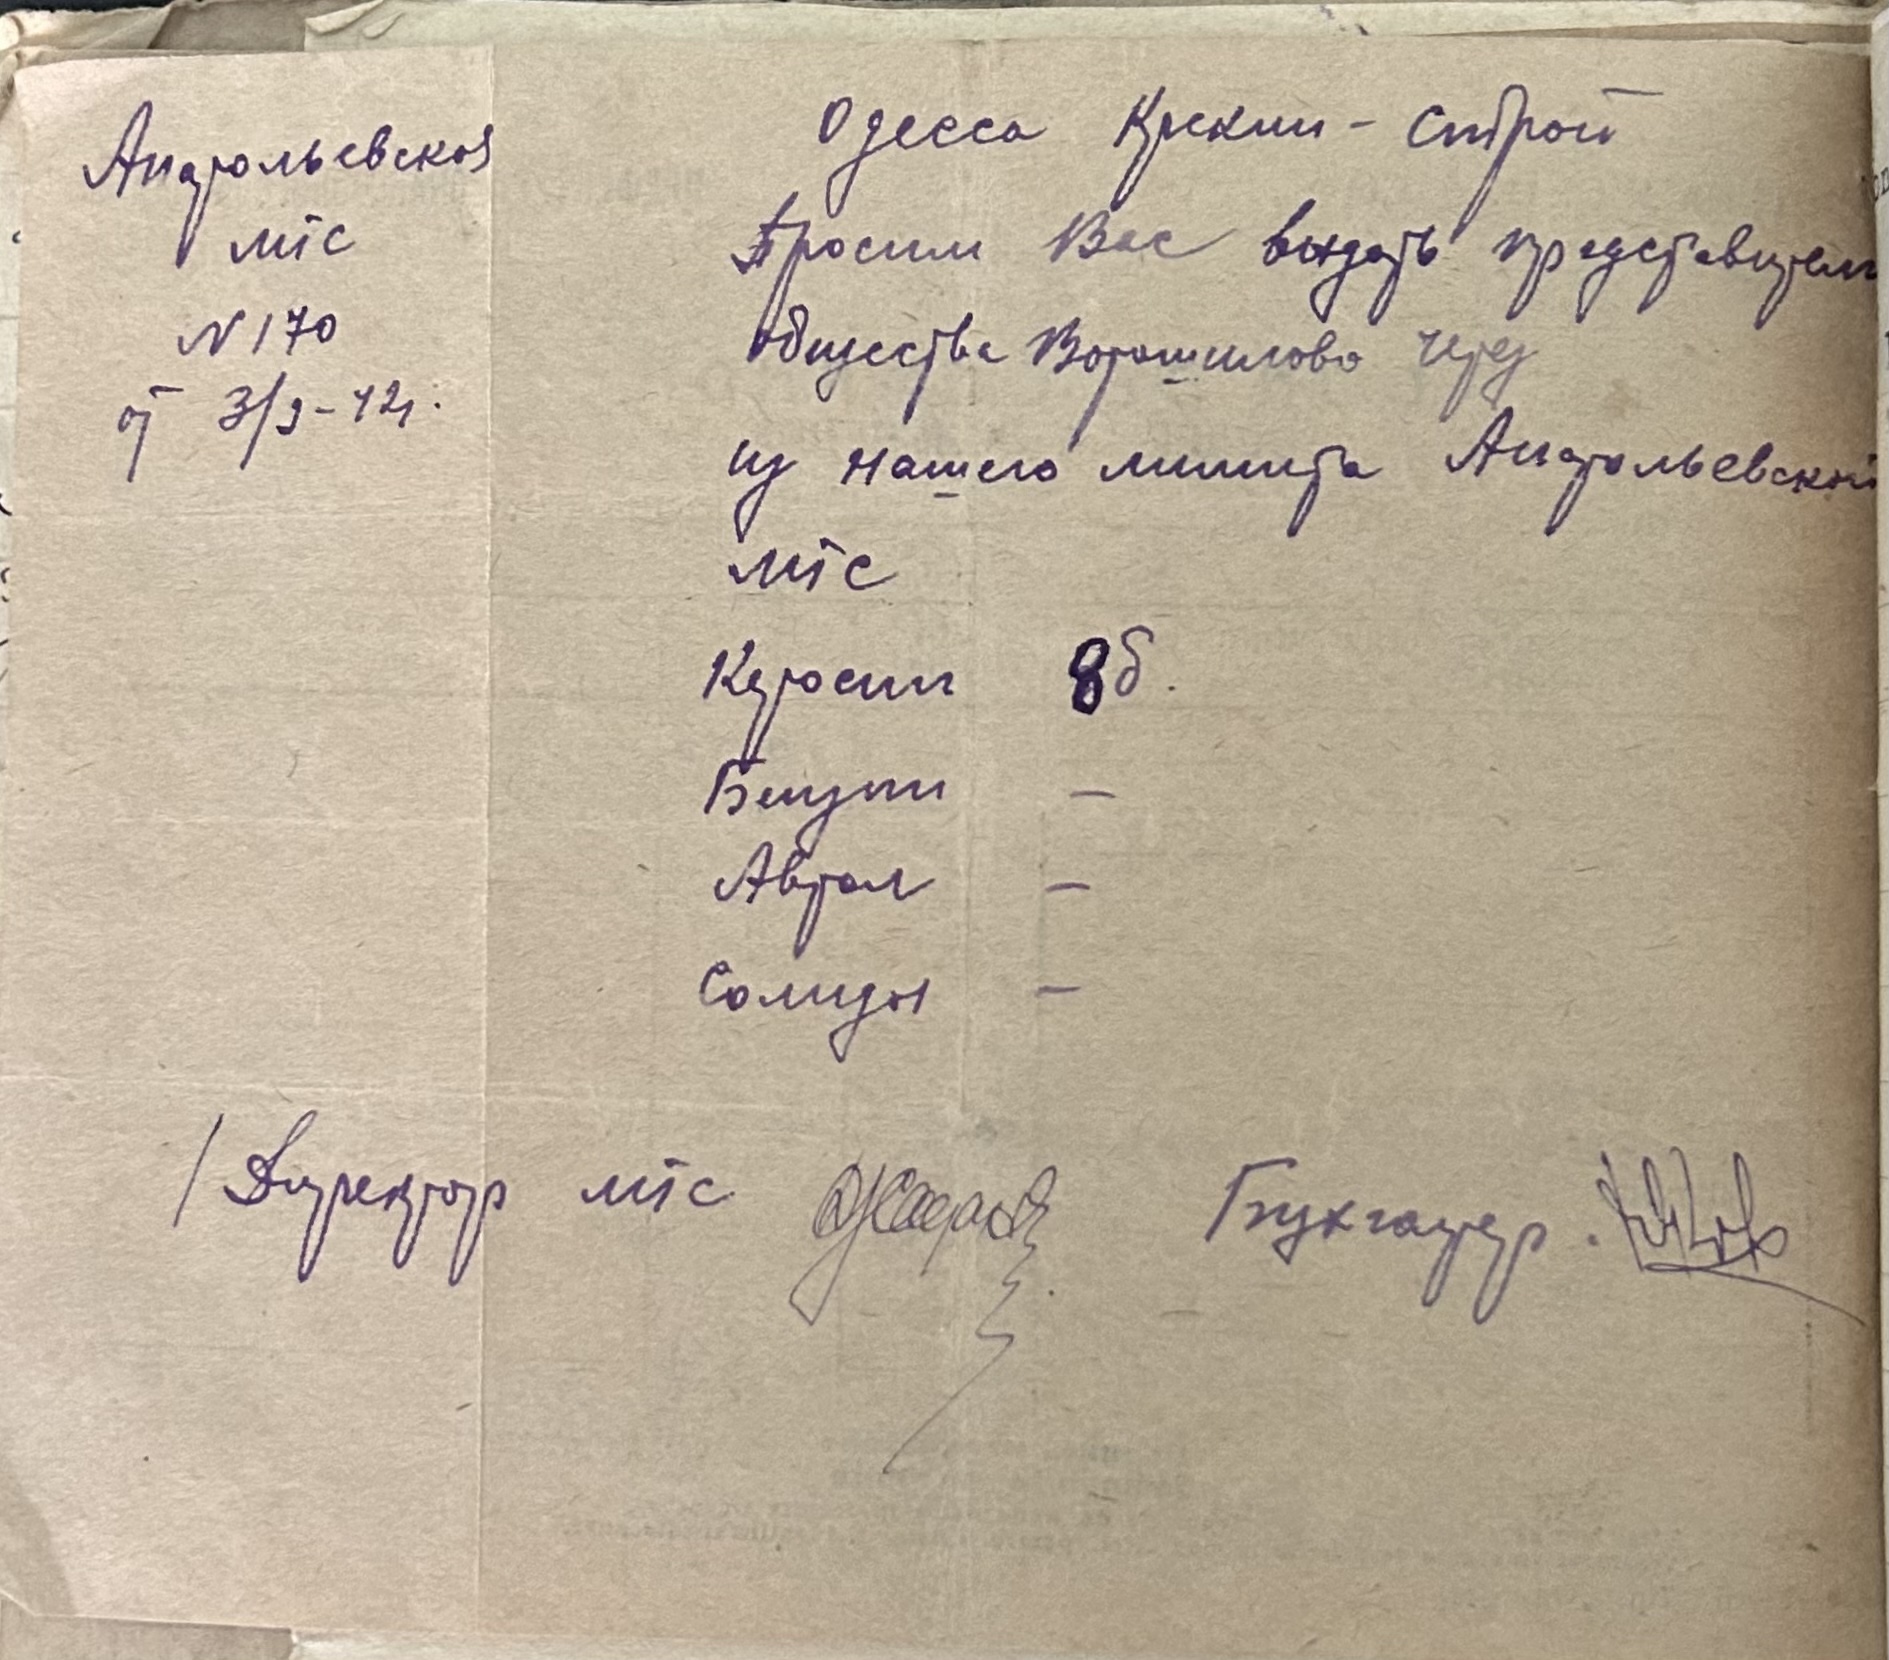 Анатольевская
МТС
N 170
от 3/9-42г.
Одесса Крекин-Строй
Просим Вас выдать представителю
общества Ворошилова через
из нашего лимита Анатольевской
МТС
Керосин 8 б.
Бензин —
Автол —
Солидол —
Директор МТС
Бухгалтер.